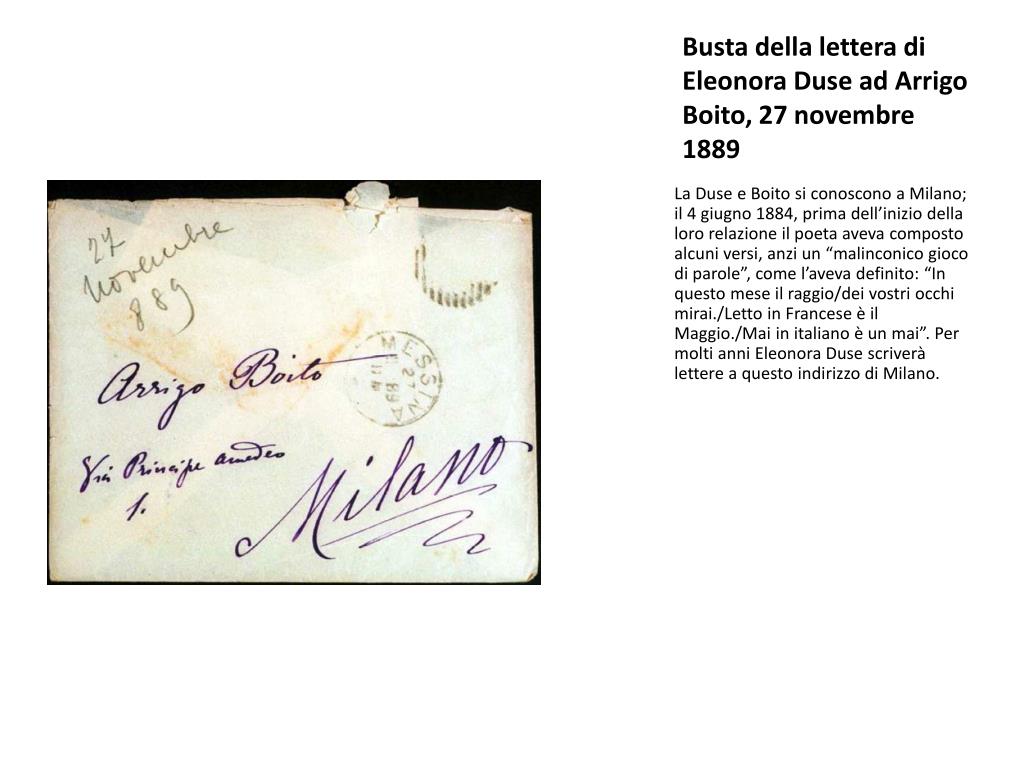 Busta della lettera di
Eleonora Duse ad Arrigo
Boito, 27 novembre
1889
La Duse e Boito si conoscono a Milano;
il 4 giugno 1884, prima dell’inizio della
loro relazione il poeta aveva composto
alcuni versi, anzi un “malinconico gioco
di parole”, come l’aveva definito: “In
questo mese il raggio/dei vostri occhi
mirai./Letto in Francese è il
Maggio./Mai in italiano è un mai”. Per
molti anni Eleonora Duse scriverà
lettere a questo indirizzo di Milano.
27
novembre
889
MESSINA
Arrigo Boito
Via Principe amedeo
1.
Milano